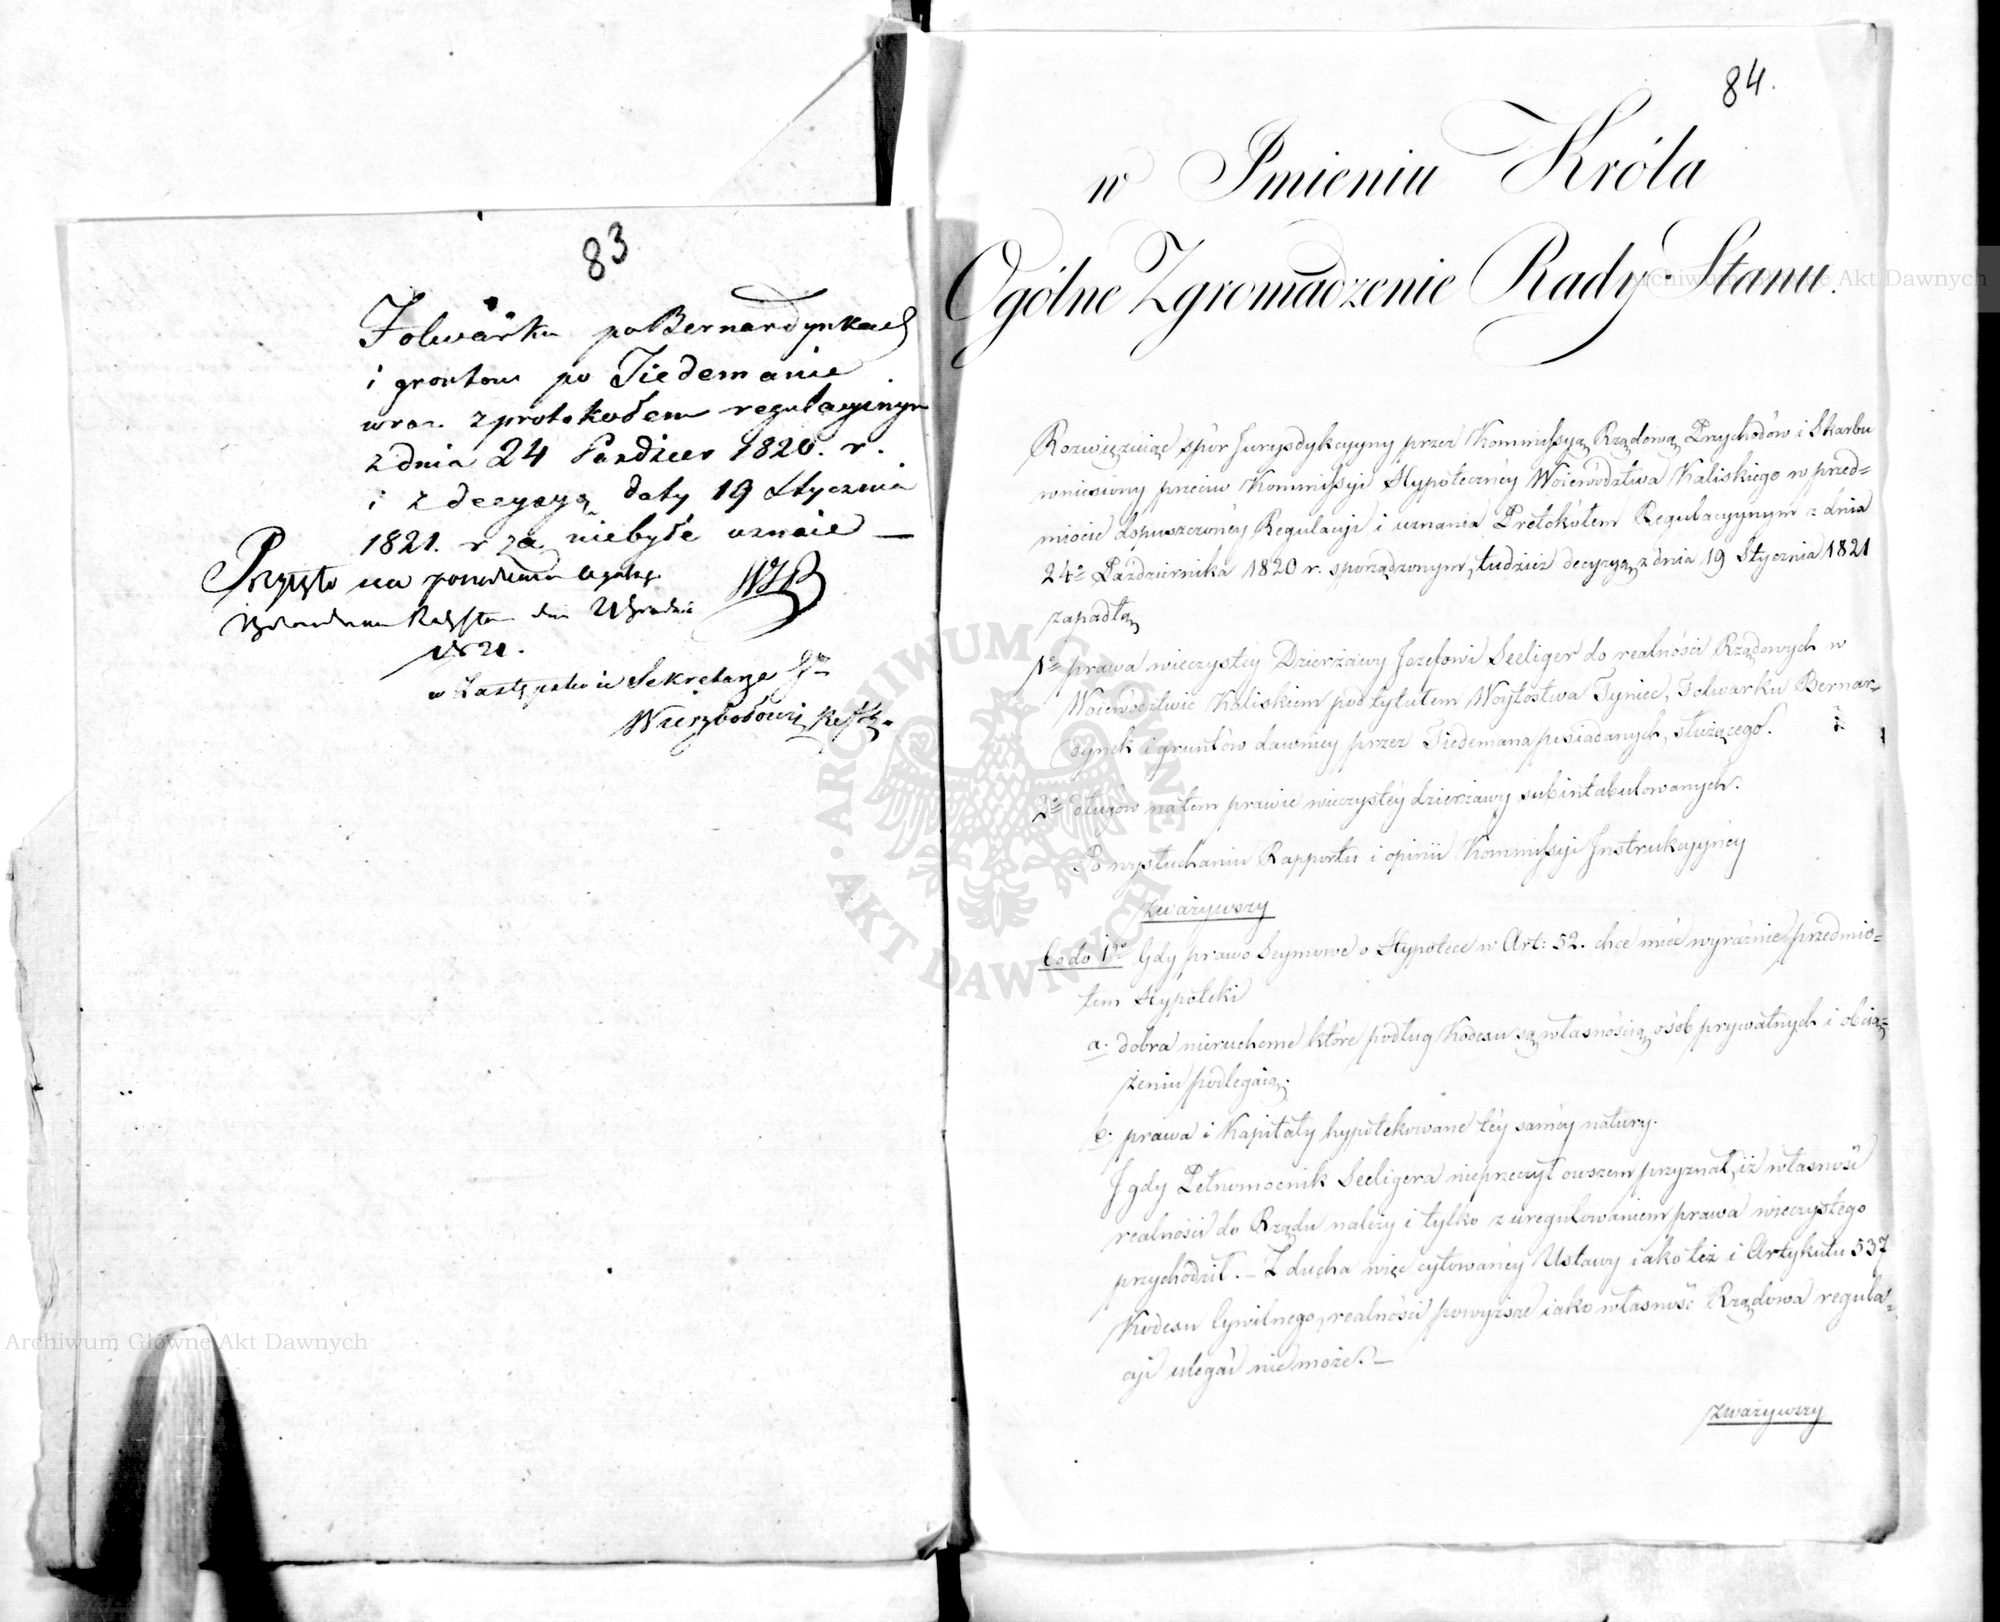 83
Folwarku po Bernardynkach
i grontow po Tiedemanie
wraz z protokołem regulacyinym
z dnia 24 Pazdzier 1820. r.
i z decyzyą daty 19 Stycznia
1821. r za niebyłe uznaie —
Przyięto na posiedzeniu
Rady Stanu dnia
1821.
w Zastępstwie Sekretarza
84.
w Imieniu Króla
Ogólne Zgromadzenie Rady Stanu.
Rozwięzuiąc spór Jurysdykcyyny przez Kommissyą Rządową Przychodów i Skarbu
wniesiony przeciw Kommissyi Hypoteczney Woiewództwa Kaliskiego w przed=
miocie dopuszczoney Regulacyi i uznania Protokółem Regulacyynym z dnia
24o Października 1820 r. sporządzonym, tudzież decyzyą z dnia 19 Stycznia 1821
zapadłą
1o prawa wieczystey Dzierżawy Jozefowi Seeliger do realności Rządowych w
Woiewództwie Kaliskiem pod tytułem Woytostwa Tyniec, Folwarku Bernar=
dynek i gruntów dawniey przez Tiedemana posiadanych, służącego.
2o długów na tem prawie wieczystey dzierżawy subintabulowanych.
Po wysłuchaniu Rapportu i opinii Kommissyi Instrukcyyney
zważywszy
Co do 1o Gdy prawo Seymowe o Hypotece w Art: 52. chce mieć wyraźnie przedmio=
tem Hypoteki
a. dobra nieruchome które podług Kodexu są własnością osób prywatnych i obcią=
żeniu podlegaią.
b. prawa i Kapitały hypotekowane tey samey natury.
I gdy Pełnomocnik Seeligera nieprzeczył owszem przyznał, iż własność
realności do Rządu należy i tylko z uregulowaniem prawa wieczystego
przychodził. — Z ducha więc cytowaney Ustawy iako też i Artykułu 537
Kodexu Cywilnego, realności powyższe iako własność Rządowa regula=
cyi ulegać nie może. —
zważywszy
Archiwum Główne Akt Dawnych
Archiwum Główne Akt Dawnych
ARCHIWUM GŁÓWNE · AKT DAWNYCH ·